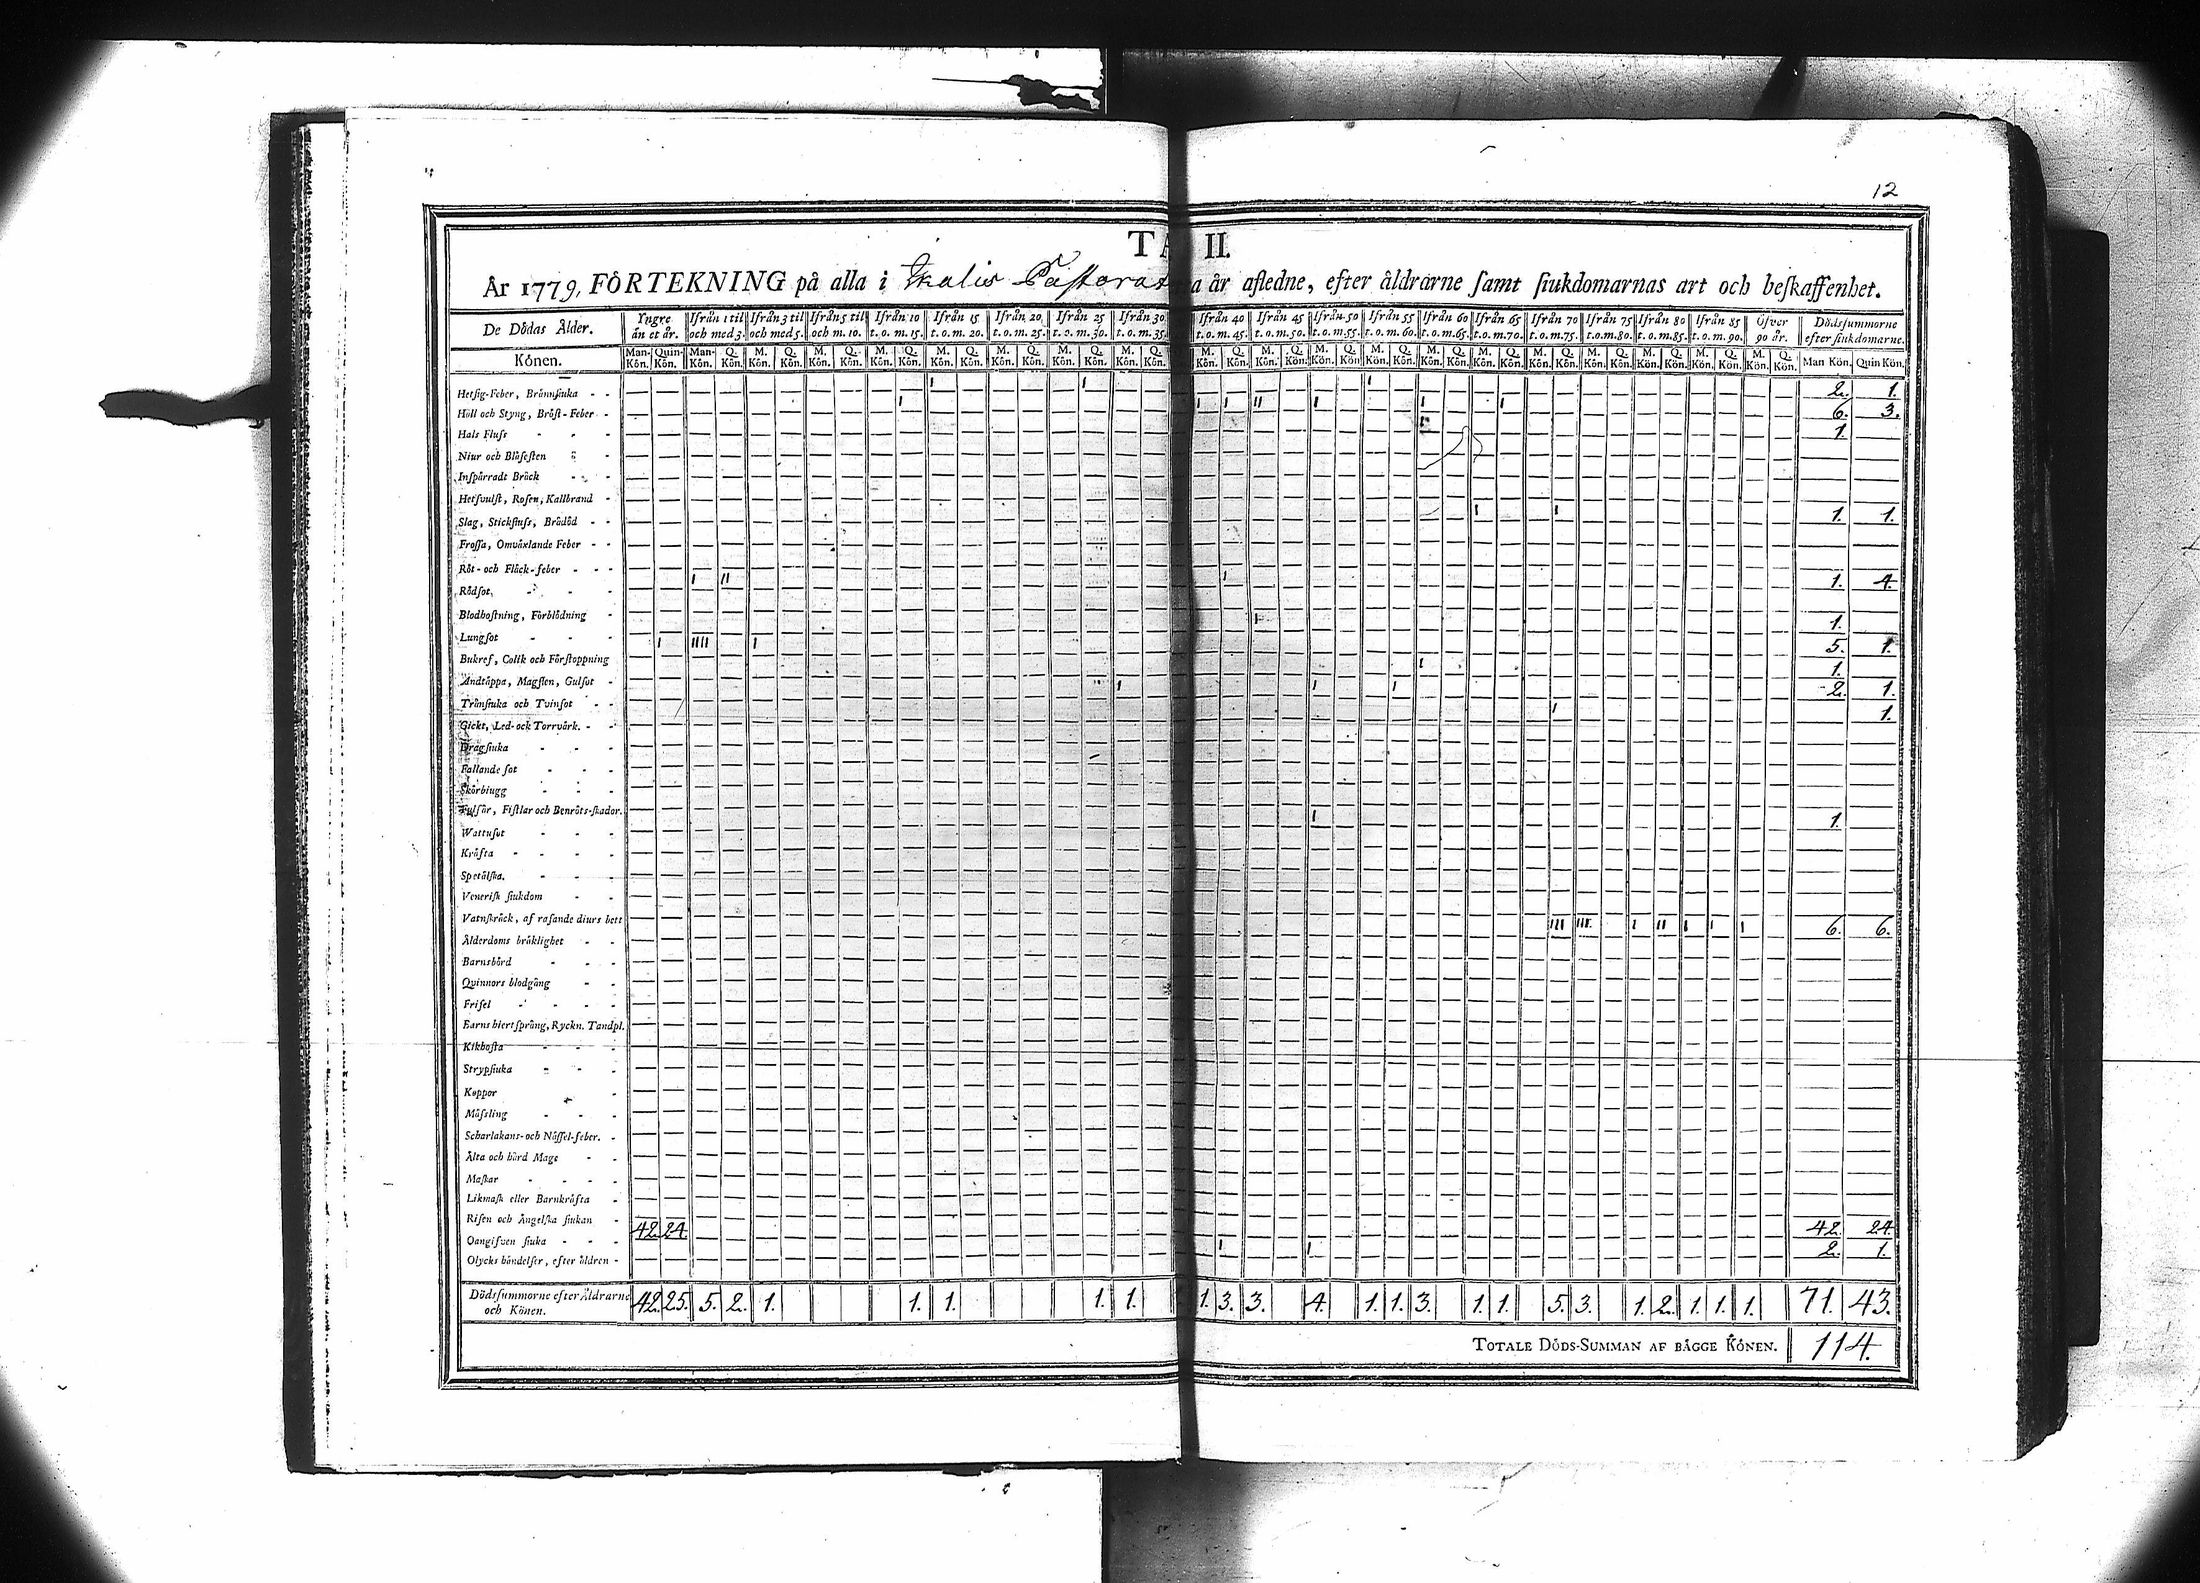 12
TA II.
År 1779, FÖRTEKNING på alla i Ikalis Pastorat a år afledne, efter åldrarne samt siukdomarnas art och beskaffenhet.
De Dödas Ålder. Yngre än et år. Ifrån 1 til och med 3. Ifrån 3 til och med 5. Ifrån 5 til och m. 10. Ifrån 10 t. o. m. 15. Ifrån 15 t. o. m. 20. Ifrån 20 t. o. m. 25. Ifrån 25 t. o. m. 30. Ifrån 30 t. o. m. 35. Ifrån 40 t. o. m. 45. Ifrån 45 t. o. m. 50. Ifrån 50 t. o. m. 55. Ifrån 55 t. o. m. 60. Ifrån 60 t. o. m. 65. Ifrån 65 t. o. m. 70. Ifrån 70 t. o. m. 75. Ifrån 75 t. o. m. 80. Ifrån 80 t. o. m. 85. Ifrån 85 t. o. m. 90. Öfver 90 år. Dödssummorne efter siukdomarne.
Könen. Man-Kön. Quin-Kön. Man-Kön. Q. Kön. M. Kön. Q. Kön. M. Kön. Q. Kön. M. Kön. Q. Kön. M. Kön. Q. Kön. M. Kön. Q. Kön. M. Kön. Q. Kön. M. Kön. Q. Kön. M. Kön. Q. Kön. M. Kön. Q. Kön. M. Kön. Q. Kön. M. Kön. Q. Kön. M. Kön. Q. Kön. M. Kön. Q. Kön. M. Kön. Q. Kön. M. Kön. Q. Kön. M. Kön. Q. Kön. M. Kön. Q. Kön. M. Kön. Q. Kön. Man Kön. Quin Kön.
Hetsig-Feber, Brännsiuka - - ı ı ı 2. 1.
Håll och Styng, Bröst-Feber - ı ı ı ıı ı ı ı 6. 3.
Hals Fluss - - - ı 1.
Niur och Blåsesten - -
Inspärradt Bråck - -
Hetsvulst, Rosen, Kallbrand -
Slag, Stickfluss, Brådöd - - ı ı 1. 1.
Frossa, Omväxlande Feber - -
Röt- och Fläck-feber - - -
Rödsot, - - - ı ıı ı 1. 4.
Blodhostning, Förblödning - ı 1.
Lungsot - - - ı ıııı ı 5. 1.
Bukref, Colik och Förstoppning ı 1.
Andtäppa, Magsten, Gulsot - ı ı ı 2. 1.
Trånsiuka och Tvinsot - - ı 1.
Gickt, Led- och Torrvärk. - -
Dragsiuka - - -
Fallande sot - - -
Skörbiugg - - -
Fulsår, Fistlar och Benröts-skador. ı 1.
Wattusot - - -
Kräfta - - - -
Spetälska. - - -
Venerisk siukdom - -
Vatnskräck, af rasande diurs bett
Ålderdoms bräklighet - - ııı ııı ı ıı ı ı ı 6. 6.
Barnsbörd - - -
Quinnors blodgång - -
Frisel - - - -
Barns hiertsprång, Ryckn. Tandpl.
Kikhosta - - -
Strypsiuka - - -
Koppor - -
Mässling - - -
Scharlakans- och Nässel-feber. -
Älta och hård Mage - -
Maskar - - - -
Likmask eller Barnkräfta -
Risen och Ängelska siukan -
Oangifven siuka - - - 42. 24. 42. 24.
Olycks händelser, efter åldren - ı ı 2. 1.
Dödssummorne efter Åldrarne och Könen. 42. 25. 5. 2. 1. 1. 1. 1. 1. 1. 3. 3. 4. 1. 1. 3. 1. 1. 5. 3. 1. 2. 1. 1. 1. 71. 43.
TOTALE DÖDS-SUMMAN AF BÄGGE KÖNEN. 114.